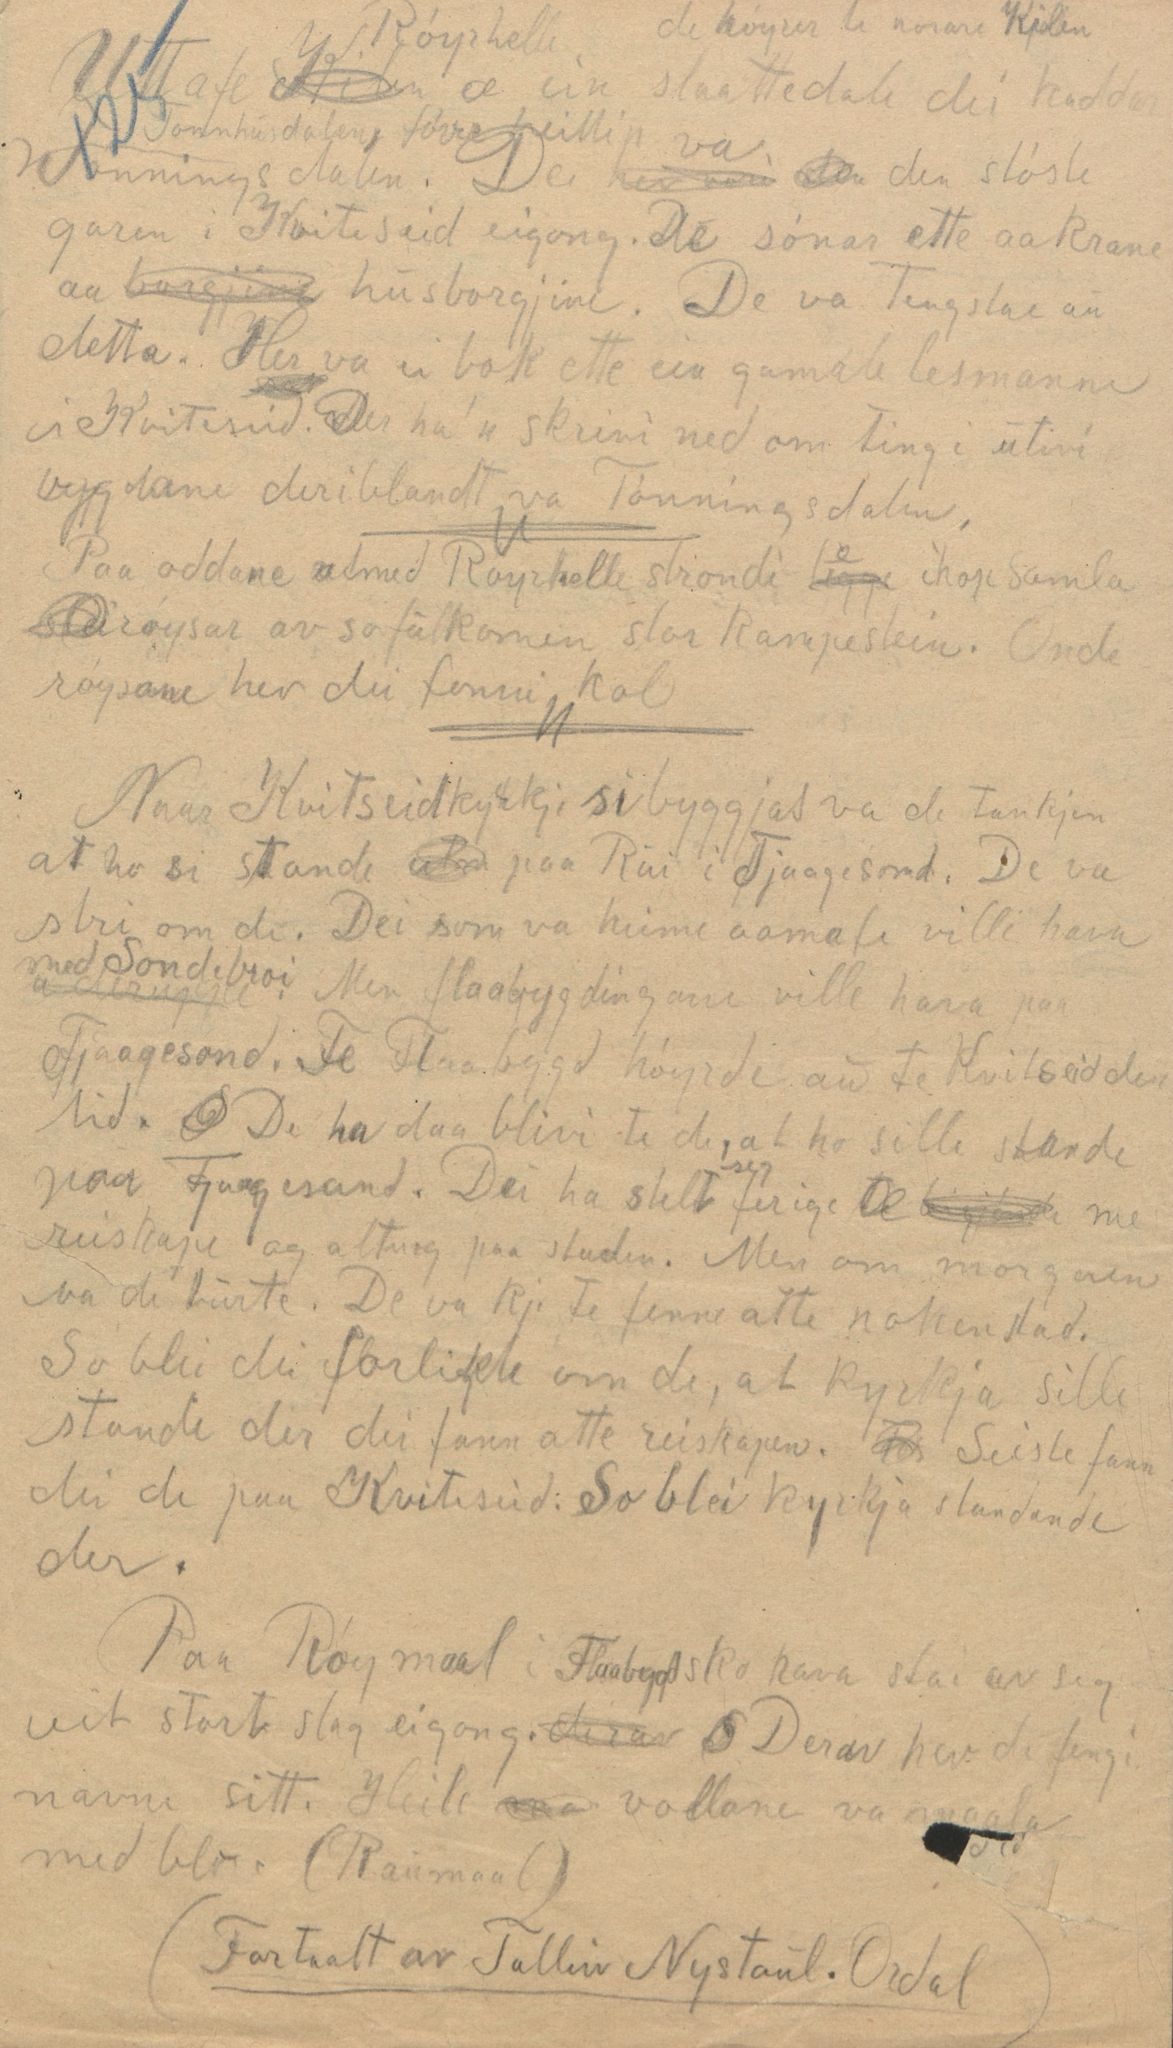 Röyrhelle de höyrer te norare Kjilen
Uttafe Kjilen æ ein slaattedale dei kaddar
x25
Tonnhusdalen, fövre heillip
Tönningsdalen. De va den störste
garen i Kviteseid eigong. De sönar ette aakrane
aa borgjine husborgjine. De va Tengslae au
detta. Her va ei bok ette ein gamale lesmanne
i Kviteseid. Der ha'n skrivi ned om ting i utivi
bygdane deriblandt va Tönningsdalen.
Paa oddane utmed Röyrhelle strondi ligge ihopsamla
röysar av so fulkomen stor kampestein. Onde
röysane hev dei funni kol
Naar Kvitseidkyrkje si byggjast va de tankjen
at ho si stande paa Rui i Fjaagesond. De va
stri om de. Dei som va heime aamafe ville hava
med Sondebroi
a deruppe. Men flaabygdingane ville hava paa
Fjaagesond. Te Flaabygd höyrde au te Kvitseid den
tid. De ha daa blivi te de, at ho sille stande
paa Fjaagesand. Dei ha stelt seg ferige te me
reiskape og alt meg paa staden. Men om morgonen
va de burte. De va kje te fenne atte noken stad.
So blei dei forlikte om de, at kyrkja sille
stande der dei fann atte reiskapen. Seiste fann
dei de paa Kviteseid: So blei kyrkja standande
der.
Paa Röymaal i Flaabygd sko hava stai av seg
eit stort slag eigong. derav Derav hev de fengi
navne sitt. Heile vollane va maala
med blo. (Raumaal)
(Fortaalt av Talliv Nystaul. Ordal)